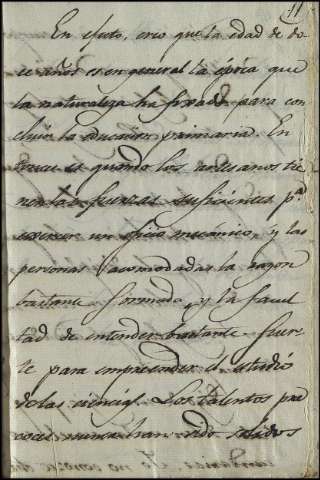 11
En efecto, creo que la edad de do
ce años es en general la época que
la naturaleza ha fixado para con
cluir la educacion primaria. En
tonces es quando los artesanos tie
nen las fuerzas suficientes p.ª
exercer un oficio mecanico, y las
personas acomodadas la razon
bastante formada, y la facul
tad de entender bastante fuer
te para emprender el estudio
de las ciencias. Los talentos pre
coces nunca han sido solidos